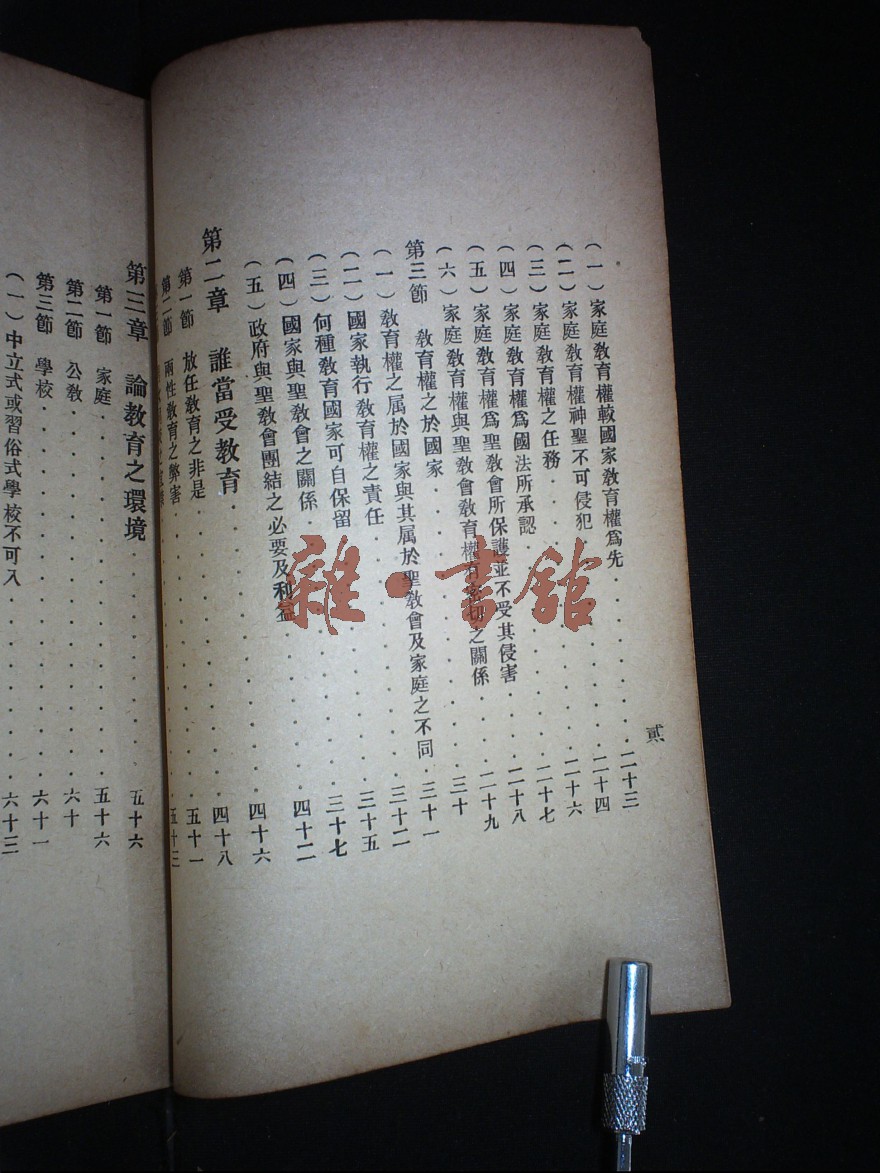 貳
(一)家庭敎育權較國家敎育權爲先 . . . . . . . . 二十三
(二)家庭敎育權神聖不可侵犯 . . . . . . . . 二十四
(三)家庭敎育權之任務 . . . . . . . . 二十六
(四)家庭敎育權爲國法所承認 . . . . . . . . 二十七
(五)家庭敎育權爲聖敎會所保護並不受其侵害 . . . . 二十八
(六)家庭敎育權與聖敎會敎育權有 之關係 . . . . 二十九
第三節 敎育權之於國家 . . . . . . . . 三十
(一)敎育權之属於國家與其属於聖敎會及家庭之不同 . 三十一
(二)國家執行敎育權之責任 . . . . . . . . 三十二
(三)何種敎育國家可自保留 . . . . . . . . 三十五
(四)國家與聖敎會之關係 . . . . . . . . 三十七
(五)政府與聖敎會團結之必要及利益 . . . . . . 四十二
四十六
第二章 誰當受教育 . . . . . . . . 四十八
第一節 放任敎育之非是 . . . . . . . . 五十一
第二節 兩性敎育之弊害 . . . . . . . . 五十三
第三章 論教育之環境 . . . . . . . . 五十六
第一節 家庭 . . . . . . . . 五十六
第二節 公敎 . . . . . . . . 六十
第三節 學校 . . . . . . . . 六十一
(一)中立式或習俗式學校不可入 . . . . . . 六十三
雜·書館